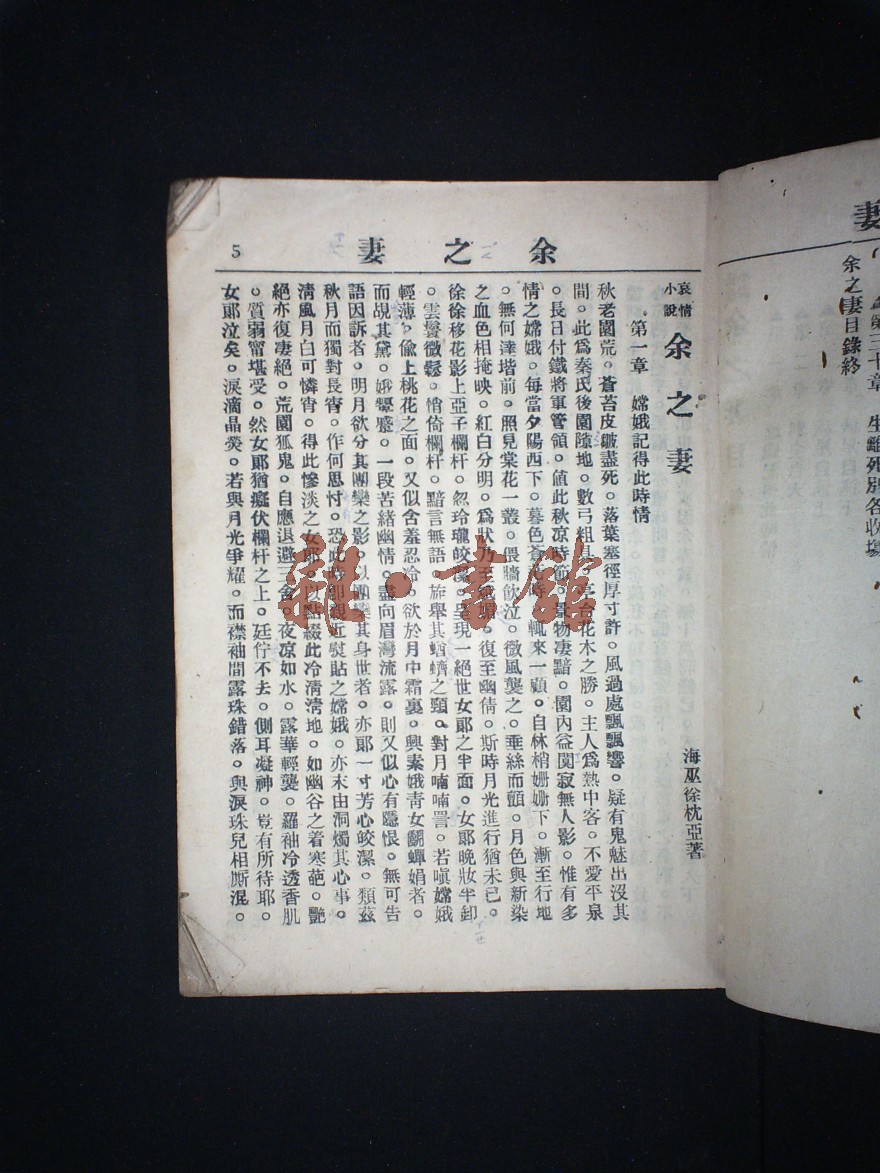 妻
第三十章 生離死別各收場
余之妻目錄終
余之妻
5
哀情
小說
余之妻
海巫徐枕亞著
第一章 嫦娥記得此時情
秋老園荒。蒼苔皮皺盡死。落葉塞徑厚寸許。風過處飄飄響。疑有鬼魅出沒其
間。此爲秦氏後園隙地。數弓粗具亭台花木之勝。主人爲熱中客。不愛平泉
。長日付鐵將軍管領。値此秋凉時節。景物凄黯。園內益闃寂無人影。惟有多
情之嫦娥。每當夕陽西下。暮色蒼茫時。輒來一顧。自林梢姍姍下。漸至行地
。無何達堦前。照見棠花一叢。偎牆飮泣。微風襲之。垂絲而顫。月色與新染
之血色相掩映。紅白分明。爲狀乃至。復至幽倩。斯時月光進行猶未已。
徐徐移花影上亞子欄杆。忽玲瓏皎潔。呈現一絕世女郞之半面。女郞晚妝半卸
。雲鬟微鬆。悄倚欄杆。黯言無語。旋舉其蝤蠐之頸。對月喃喃詈。若嗔嫦娥
輕薄。偸上桃花之面。又似含羞忍冷。欲於月中霜裏。與素娥靑女鬭蟬娟者。
而覘其黛。娥顰蹙。一段苦緖幽情。盡向眉灣流露。則又似心有隱恨。無可告
語因訴者。明月欲分其團欒之影。以團欒其身世者。亦郞一寸芳心皎潔。類茲
秋月而獨對長宵。作何思忖。恐此時卽親近熨貼之嫦娥。亦末由洞燭其心事。
淸風月白可憐宵。得此慘淡之女郞。以點綴此冷淸淸地。如幽谷之着寒葩。艷
絕亦復凄絕。荒園狐鬼。自應退避三舍。夜凉如水。露華輕襲。羅袖冷透香肌
。質弱甯堪受。然女郞猶癡伏欄杆之上。廷佇不去。側耳凝神。豈有所待耶。
女郞泣矣。淚滴晶熒。若與月光爭耀。而襟袖間露珠錯落。與淚珠兒相厮混。
雜·書館